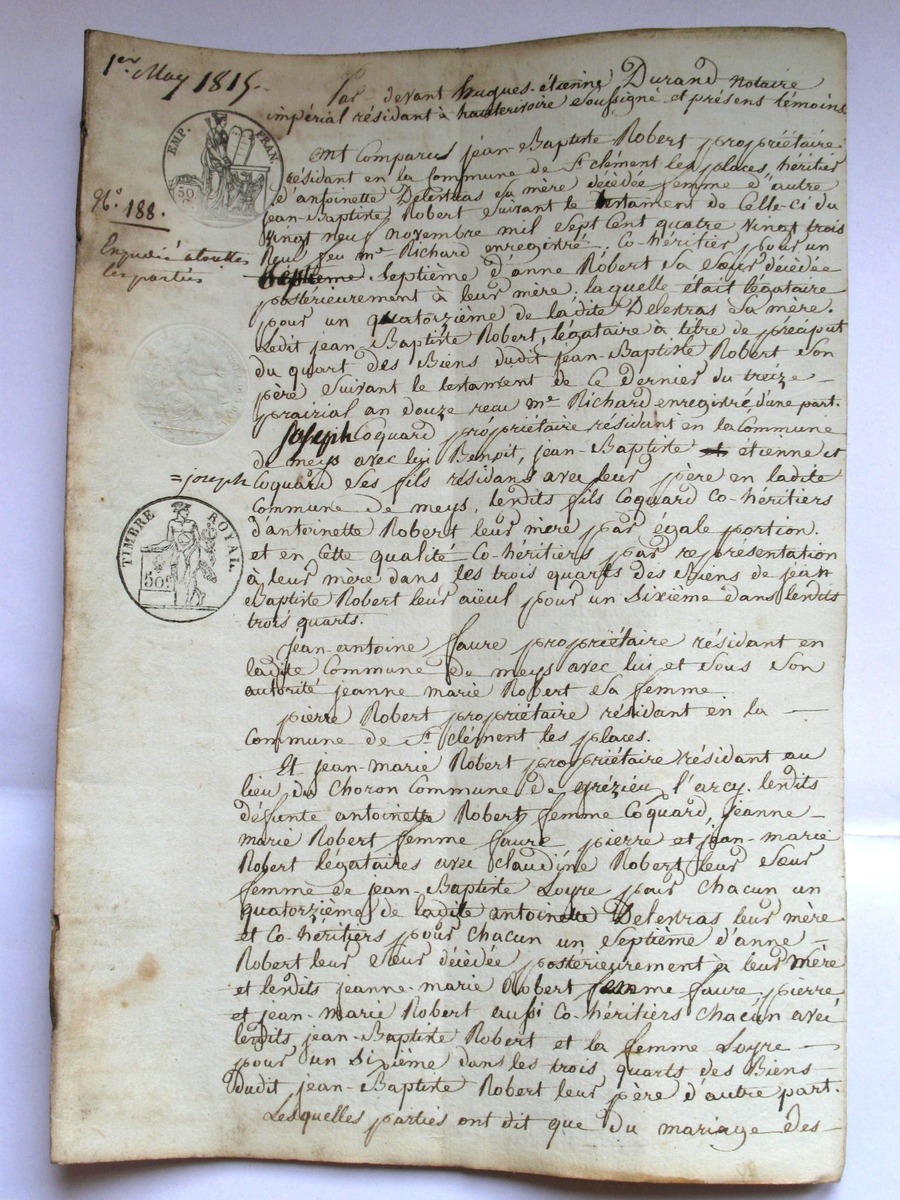 1er May 1815.
Par devant hugues-étienne Durand notaire
impérial résidant à hauterivoire soussigné et présens témoins
EMP. FRAN.
50
ont Comparus jean-Baptiste Robert propriétaire
résidant en la Commune de St clément les places, héritier
d'antoinette Delestras sa mère décèdée femme d'autre
N.o 188.
jean-Baptiste Robert suivant le testament de Celle-ci du
vingt neuf novembre mil sept Cent quatre vingt trois
Expédié a toutes
les parties
Reçu feu me Richard enregistré. Co-héritier pour un
septième d'anne Robert sa sœur décèdée
postérieurement à leur mère, laquelle était légataire
pour un quatorzième de ladite Delestras sa mère.
Ledit jean-Baptiste Robert, légataire à titre de préciput
du quart des Biens dudit jean-Baptiste Robert son
père suivant le testament de Ce dernier du treize
prairial an douze reçu me Richard enregistré, d'une part.
joseph Coquard propriétaire résidant en la Commune
de meys avec lui Benoit, jean-Baptiste et étienne et
= joseph
Coquard ses fils résidans avec leur père en ladite
Commune de meys, lesdits fils Coquard Co-héritiers
d'antoinette Robert leur mère par égale portion.
TIMBRE ROYAL.
50c
et en Cette qualité Co-héritiers par représentation
à leur mère dans les trois quarts des Biens de jean
Baptiste Robert leur aïeul pour un sixième dans lesdits
trois quarts.
Jean-antoine faure propriétaire résidant en
ladite Commune de meys avec lui et sous son
autorité jeanne marie Robert sa femme
pierre Robert propriétaire résidant en la
Commune de St clément les places.
Et jean-marie Robert propriétaire résidant au
lieu du Choron Commune de grézieu l'arcy. lesdits
défunte antoinette Robert femme Coquard, jeanne
marie Robert femme faure, pierre et jean-marie
Robert légataires avec claudine Robert leur sœur
femme de jean-Baptiste Loyre pour chacun un
quatorzième de ladite antoinette Delestras leur mère
et Co-héritiers pour chacun un septième d'anne
Robert leur sœur décèdée postérieurement à leur mère
et lesdits jeanne-marie Robert femme faure, pierre
et jean-marie Robert aussi Co-héritiers chacun avec
lesdits jean-Baptiste Robert et la femme Loyre
pour un sixième dans les trois quarts des Biens
dudit jean-Baptiste Robert leur père d'autre part.
Lesquelles parties ont dit que du mariage des